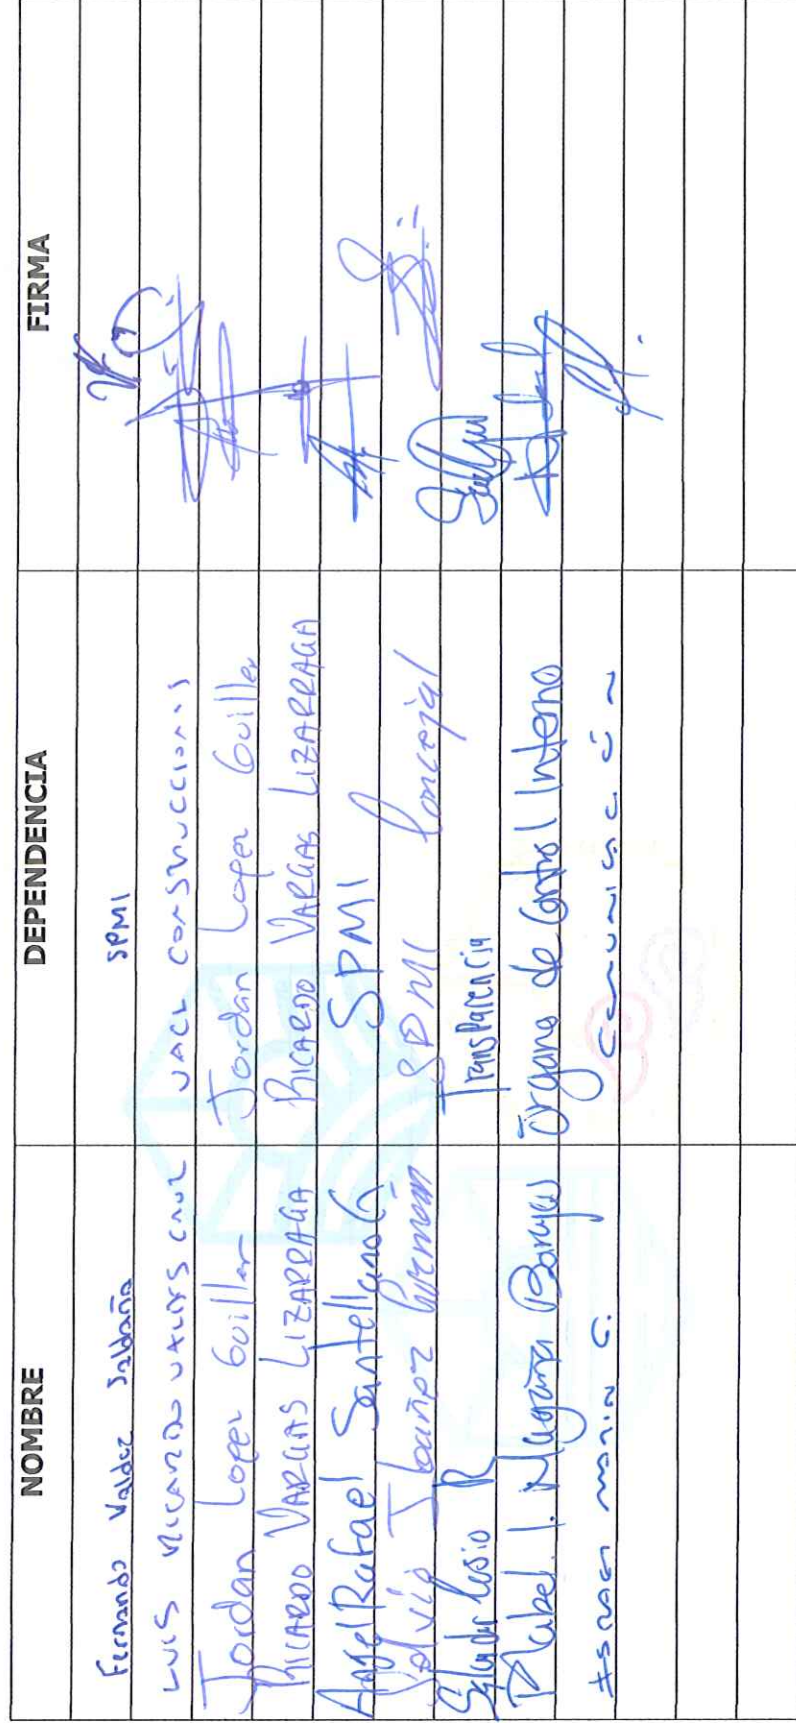 NOMBRE DEPENDENCIA FIRMA
Fernando Valdez Saldaña SPMI
LUIS RICARDO VALDES CRUZ VACL CONSTRUCCIONES
Jordan Lopez Guiller Jordan Lopez Guiller
RICARDO VARGAS LIZARRAGA RICARDO VARGAS LIZARRAGA
Angel Rafael Santellano G SPMI
Ibañez Guzmán SPMI Concejal
Salvador Cosio R Transparencia
Mabel I. Magaña Barajas Órgano de Control Interno
MARIN C. COMUNICACIÓN